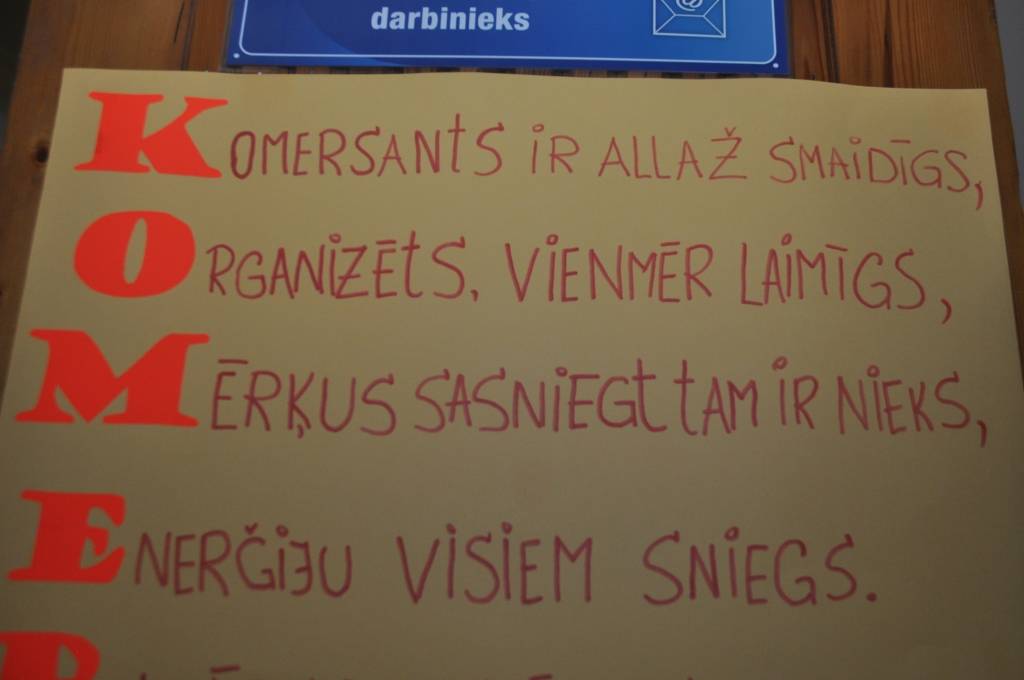 darbinieks
KOMERSANTS IR ALLAŽ SMAIDĪGS,
ORGANIZĒTS, VIENMĒR LAIMĪGS,
MĒRĶUS SASNIEGT TAM IR NIEKS,
ENERČIJU VISIEM SNIEGS.